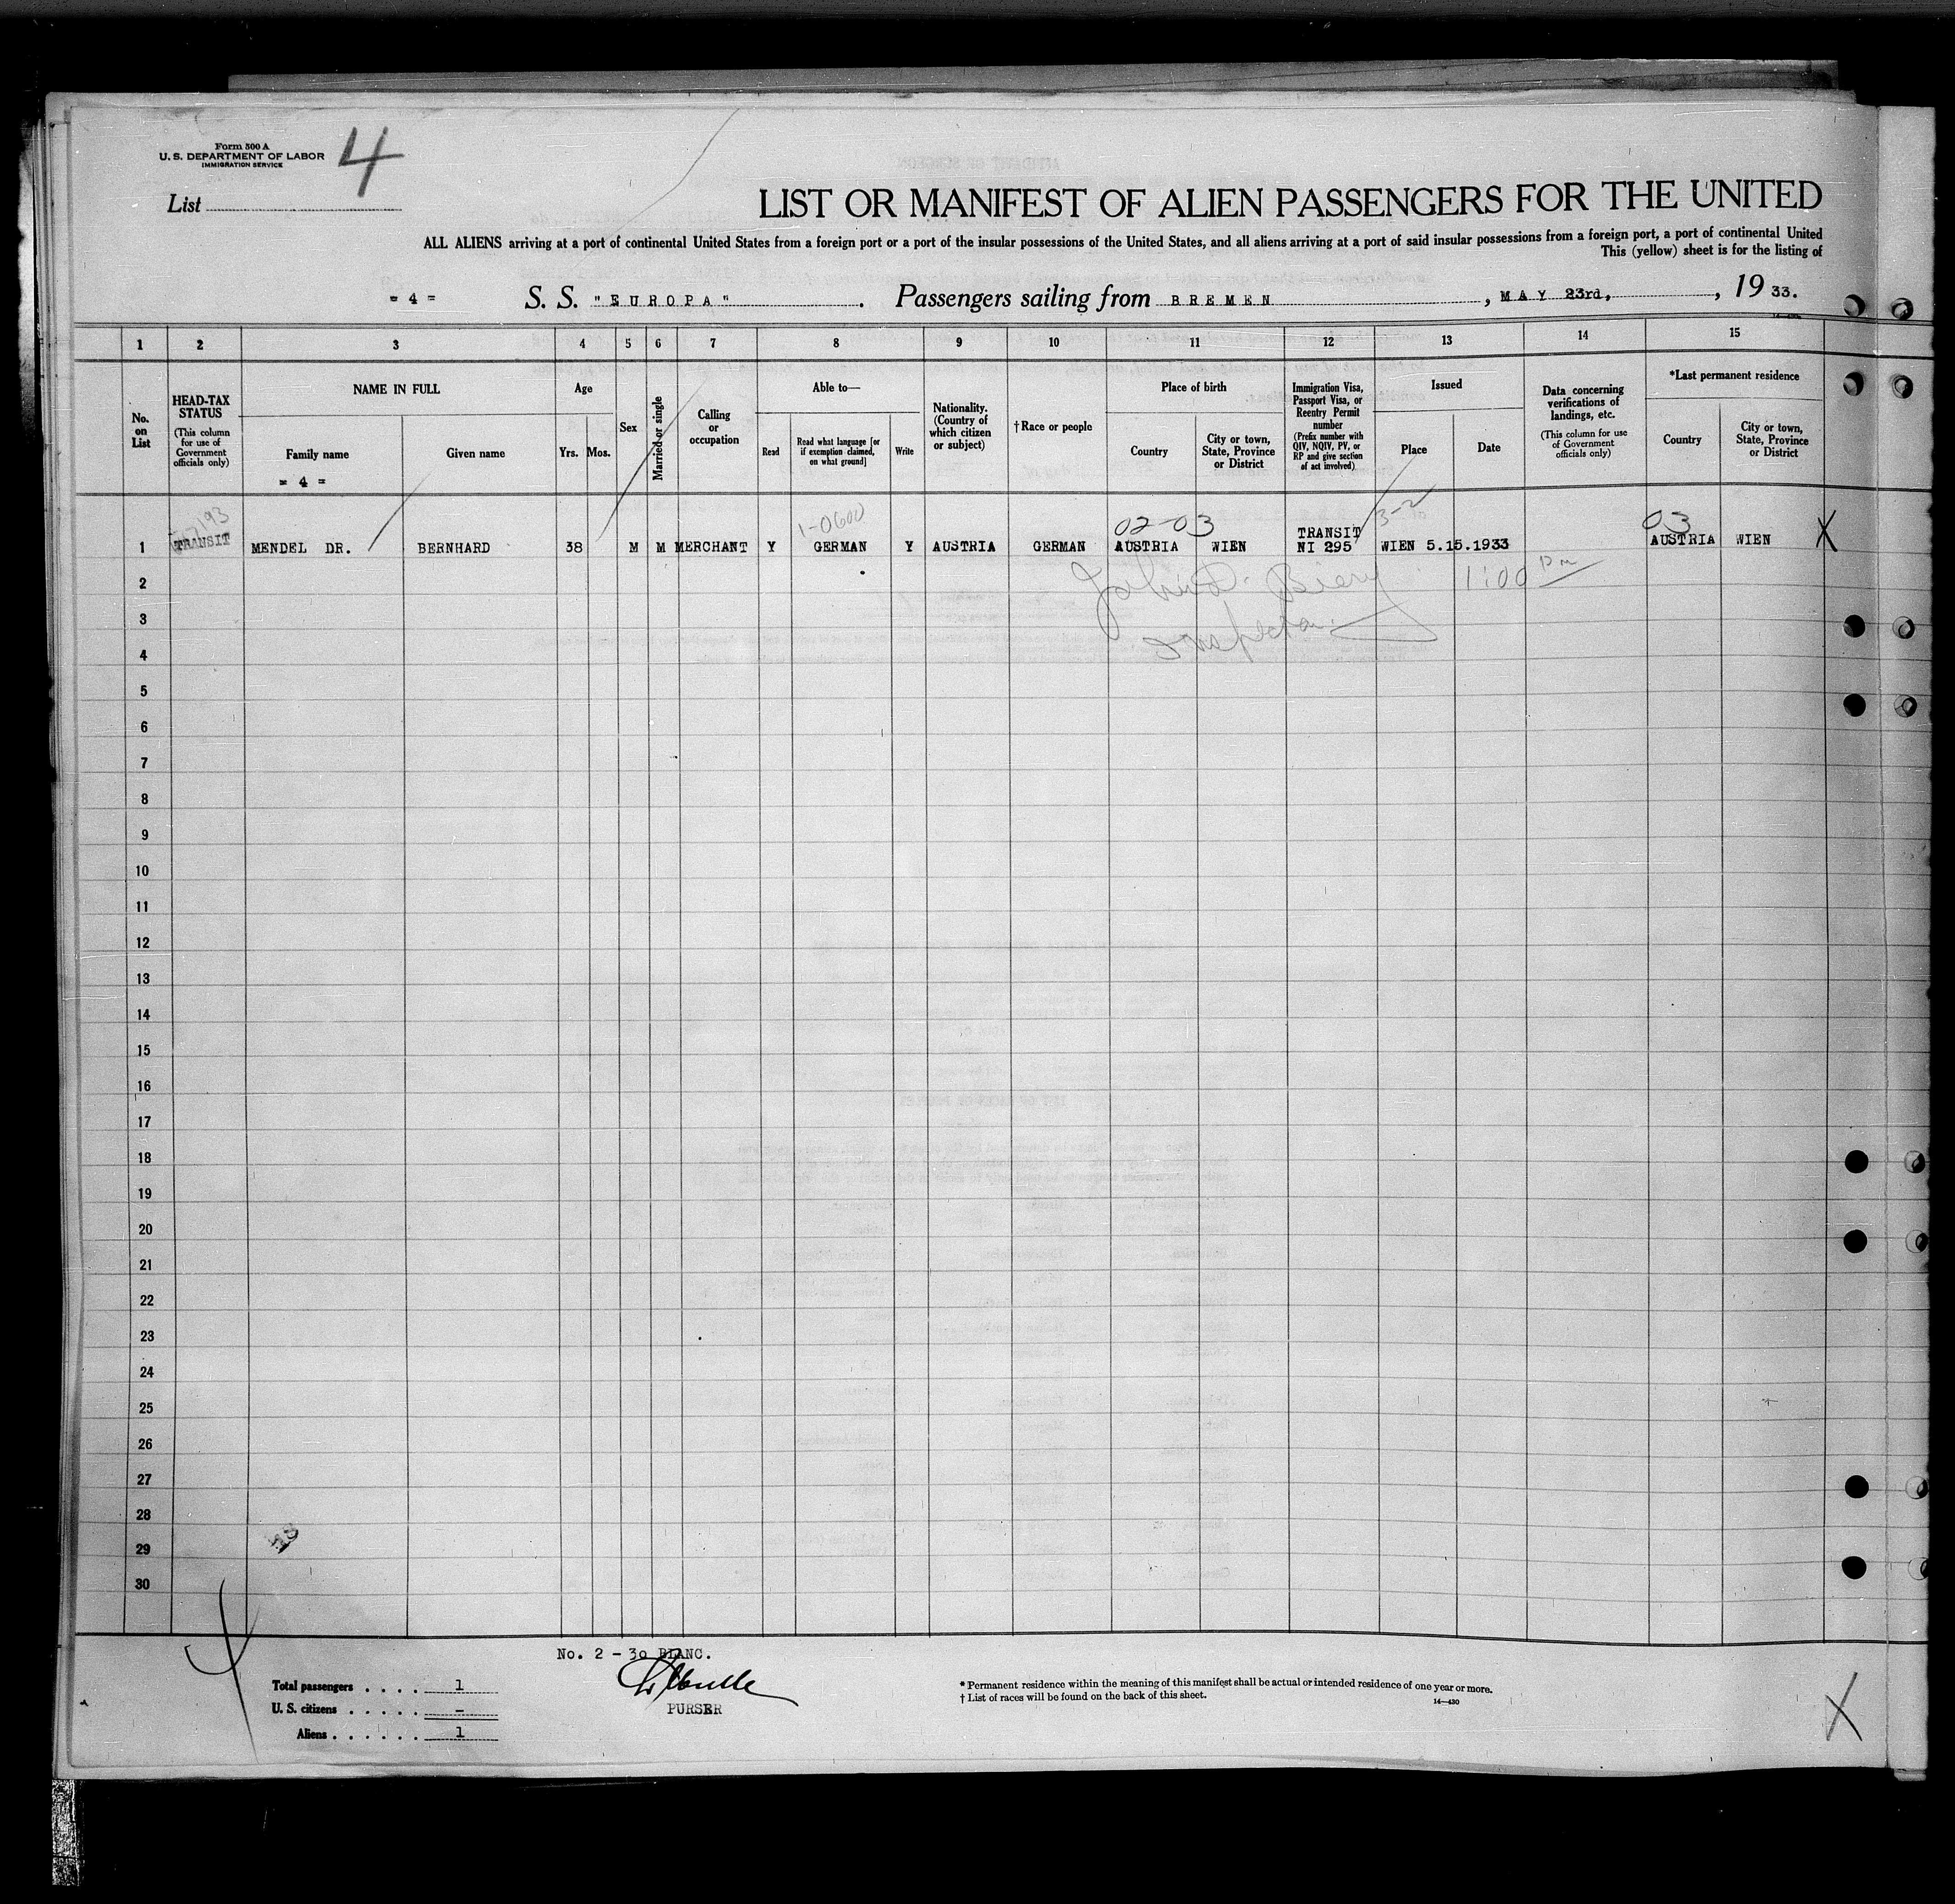 Form 500 A
U. S. DEPARTMENT OF LABOR
IMMIGRATION SERVICE
4
List
LIST OR MANIFEST OF ALIEN PASSENGERS FOR THE UNITED
ALL ALIENS arriving at a port of continental United States from a foreign port or a port of the insular possessions of the United States, and all aliens arriving at a port of said insular possessions from a foreign port, a port of continental United
This (yellow) sheet is for the listing of
= 4 = S. S. "EUROPA" . Passengers sailing from BREMEN , MAY 23rd, , 19 33.
1 2 3 4 5 6 7 8 9 10 11 12 13 14 15
No. on List
HEAD-TAX STATUS (This column for use of Government officials only)
NAME IN FULL
Family name
= 4 =
Given name
Age
Yrs. Mos.
Sex
Married or single
Calling or occupation
Able to—
Read
Read what language [or if exemption claimed, on what ground]
Write
Nationality. (Country of which citizen or subject)
†Race or people
Place of birth
Country
City or town, State, Province or District
Immigration Visa, Passport Visa, or Reentry Permit number (Prefix number with QIV, NQIV, PV, or RP and give section of act involved)
Issued
Place
Date
Data concerning verifications of landings, etc. (This column for use of Government officials only)
*Last permanent residence
Country
City or town, State, Province or District
1-0600 02-03 3-2 03
1 TRANSIT MENDEL DR. BERNHARD 38 M M MERCHANT Y GERMAN Y AUSTRIA GERMAN AUSTRIA WIEN TRANSIT NI 295 WIEN 5.15.1933 AUSTRIA WIEN X
2 John D. Biery 1:00 pm
3 Inspector
4
5
6
7
8
9
10
11
12
13
14
15
16
17
18
19
20
21
22
23
24
25
26
27
28
29
30
No. 2 - 30 BLANC.
Total passengers . . . . 1
U. S. citizens . . . . . -
Aliens . . . . . . 1
PURSER
* Permanent residence within the meaning of this manifest shall be actual or intended residence of one year or more.
† List of races will be found on the back of this sheet.
14—430
X